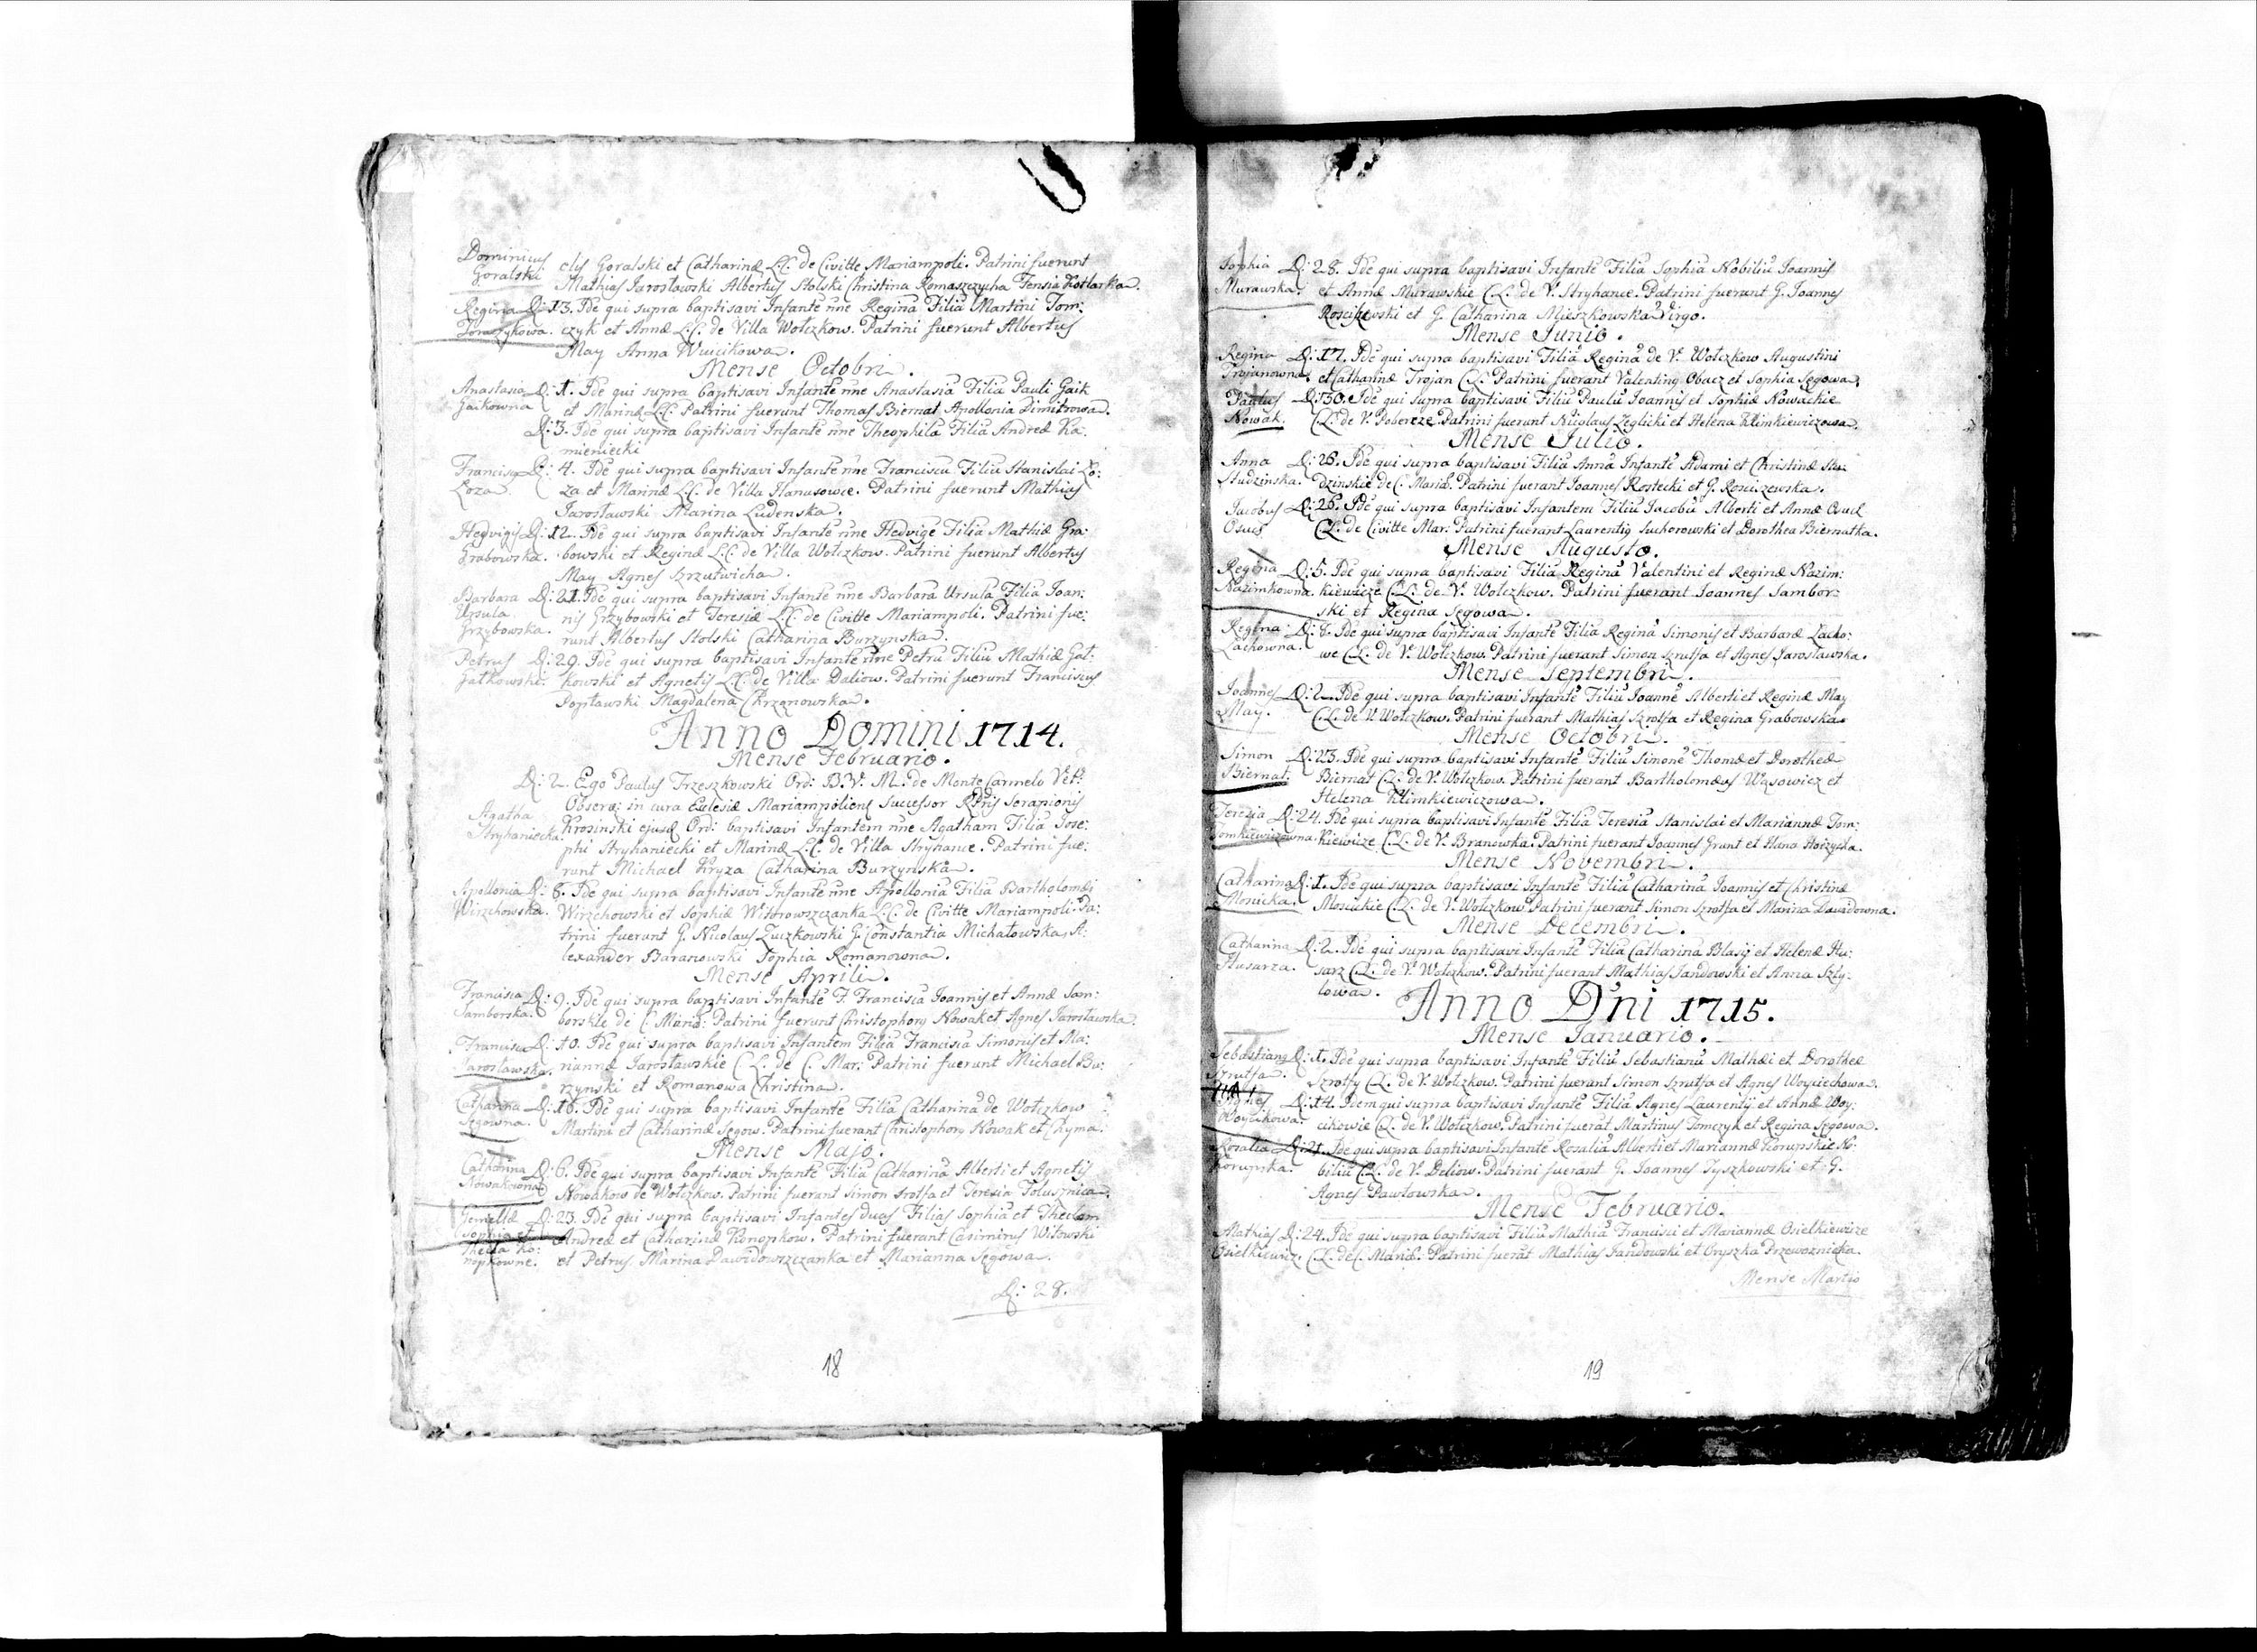 Dominicus clis Goralski et Catharinæ L.C. de Civitte Mariampoli. Patrini fuerunt
Goralski Mathias Jarosławski Albertus Stolski Christina Romaszczycha Fensia Kotlarka.
Regina D: 13. Idē qui supra baptisavi Infantē nn̄e Reginā Filiā Martini Tom:
Tomczykowa. czyk et Annæ L.C. de Villa Wołczkow. Patrini fuerunt Albertus
May Anna Wuicikowa.
Mense Octobri.
Anastasia D: 1. Idē qui supra baptisavi Infantē nn̄e Anastasiā Filiā Pauli Gaik
Gaikowna et Marinæ L.C. Patrini fuerunt Thomas Biernat Apollonia Dimitrowa.
D: 3. Idē qui supra baptisavi Infantē nn̄e Theophilā Filiā Andreæ Ka:
mieniecki
Franciscus D: 4. Idē qui supra baptisavi Infantē nn̄e Franciscū Filiū Stanislai Ło:
Łoza. za et Marinæ L.C. de Villa Hanusowce. Patrini fuerunt Mathias
Jarosławski Marina Ludenska.
Hedvigis D: 12. Idē qui supra baptisavi Infantē nn̄e Hedvigē Filiā Mathiæ Gra:
Grabowska. bowski et Reginæ L.C. de Villa Wołczkow. Patrini fuerunt Albertus
May Agnes Szrutwicha.
Barbara D: 21. Idē qui supra baptisavi Infantē nn̄e Barbarā Ursulā Filiā Joan:
Ursula nis Grzybowski et Teresiæ L.C. de Civitte Mariampoli. Patrini fue:
Grzybowska. runt Albertus Stolski Catharina Burzynska.
Petrus D: 29. Idē qui supra baptisavi Infantē nn̄e Petrū Filiū Mathiæ Gat:
Gatkowski. kowski et Agnetis L.C. de Villa Daliow. Patrini fuerunt Franciscus
Popławski Magdalena Chrzanowska.
Anno Domini 1714.
Mense Februario.
D: 2. Ego Paulus Trzeszkowski Ord: B.V.M. de Monte Carmelo Vet:
Agatha Obserꝫ: in cura Ecclesiæ Mariampoliens Successor R Pris Serapionis
Stryhaniecka. Krosinski ejusd Ord: baptisavi Infantem nn̄e Agatham Filiā Jose:
phi Stryhaniecki et Marinæ L.C. de Villa Stryhance. Patrini fue:
runt Michael Kryza Catharina Burzynska.
Apollonia D: 8. Idē qui supra baptisavi Infantē nn̄e Apolloniā Filiā Bartholomæi
Wirzchowska. Wirzchowski et Sophiæ L.C. de Civitte Mariampoli. Pa:
trini fuerunt G. Nicolaus Zuczkowski G. Constantia Michałowska, A:
lexander Baranowski Sophia Romanowna.
Mense Aprili.
Francisca D: 9. Idē qui supra baptisavi Infantē F. Franciscā Joannis et Annæ Sam:
Samborska. borskie de C. Mariā: Patrini fuerunt Christophorꝫ Nowak et Agnes Jarosławska.
Francisca D: 10. Idē qui supra baptisavi Infantem Filiā Franciscā Simonis et Ma:
Jarosławska. riannæ Jarosławskie C.L. de C. Mar: Patrini fuerunt Michael Bu:
rzynski et Romanowa Christina.
Catharina D: 16. Idē qui supra baptisavi Infantē Filiā Catharinā de Wołczkow
Segowna. Martini et Catharinæ Segow. Patrini fuerant Christophorꝫ Nowak et Chyma.
Mense Majo.
Catharina D: 6. Idē qui supra baptisavi Infantē Filiā Catharinā Alberti et Agnetis
Nowakowna Nowakow de Wołczkow. Patrini fuerant Simon Srotfa et Teresia Tolusznica.
Gemellæ D: 23. Idē qui supra baptisavi Infantes duas Filias Sophiā et Theclam
Sophia et Andreæ et Catharinæ Konopkow. Patrini fuerant Casimirus Witowski
Thecla Ko: et Petrus Marina Dawidowszczanka et Marianna Segowa.
nopkowne.
D: 28.
18
Sophia D: 28. Idē qui supra baptisavi Infantē Filiā Sophiā Nobiliū Joannis
Murawska. et Annæ Murawskie C.L. de V. Stryhance. Patrini fuerant G. Joannes
Rosciszewski et G. Catharina Mieszkowska Virgo.
Mense Junio.
Regina D: 17. Idē qui supra baptisavi Filiā Reginā de V. Wołczkow Augustini
Trojanowna. et Catharinæ Trojan C.L. Patrini fuerant Valentinꝫ Obacz et Sophia Segowa.
Paulus D: 30. Idē qui supra baptisavi Filiū Paulū Joannis et Sophiæ Nowackie
Nowak. C.L. de V. Pobereze. Patrini fuerunt Nicolaus Zeglicki et Helena Klimkiewiczowa.
Mense Julio.
Anna D: 26. Idē qui supra baptisavi Filiā Annā Infantē Adami et Christinæ Stu:
Studzinska. dzinskie de C. Mariā. Patrini fuerant Joannes Rostecki et G. Rosciszewska.
Jacobus D: 26. Idē qui supra baptisavi Infantem Filiū Jacobū Alberti et Annæ
C.L. de Civitte Mar: Patrini fuerant Laurentiꝫ Suchorowski et Dorothea Biernatka.
Mense Augusto.
Regina D: 5. Idē qui supra baptisavi Filiā Reginā Valentini et Reginæ Nazim:
Nazimkowna. kiewicze C.L. de V. Wołczkow. Patrini fuerant Joannes Sambor:
ski et Regina Segowa.
Regina D: 8. Idē qui supra baptisavi Infantē Filiā Reginā Simonis et Barbaræ Lacho:
Lachowna. we C.L. de V. Wołczkow. Patrini fuerant Simon Szrutfa et Agnes Jarosławska.
Mense Septembri.
Joannes D: 2. Idē qui supra baptisavi Infantē Filiū Joannē Alberti et Reginæ May
May. C.L. de V. Wołczkow. Patrini fuerant Mathias Szrotfa et Regina Grabowska.
Mense Octobri.
Simon D: 23. Idē qui supra baptisavi Infantē Filiū Simonē Thomæ et Dorotheæ
Biernat. Biernat C.L. de V. Wołczkow. Patrini fuerant Bartholomæus Wąsowicz et
Helena Klimkiewiczowa.
Teresia D: 24. Idē qui supra baptisavi Infantē Filiā Teresiā Stanislai et Mariannæ Tom:
Tomkiewiczowna. kiewicze C.L. de V. Branowka. Patrini fuerant Joannes Grunt et
Mense Novembri.
Catharina D: 1. Idē qui supra baptisavi Infantē Filiā Catharinā Joannis et Christinæ
C.L. de V. Wołczkow. Patrini fuerant Simon Szrotfa et Marina Dawidowna.
Mense Decembri.
Catharina D: 2. Idē qui supra baptisavi Infantē Filiā Catharinā Blasij et Helenæ Hu:
Husarza. sarz C.L. de V. Wołczkow. Patrini fuerant Mathias Sandowski et Anna Szty:
lowa.
Anno Dni 1715.
Mense Januario.
Sebastianꝫ D: 1. Idē qui supra baptisavi Infantē Filiū Sebastianū Mathæi et Dorotheæ
Szrutfa. Szrotfy C.L. de V. Wołczkow. Patrini fuerant Simon Szrutfa et Agnes Woyciechowa.
Agnes D: 14. Idem qui supra baptisavi Infantē Filiā Agnes Laurentij et Annæ Woy:
Woycikowa. cikowie C.L. de V. Wołczkow. Patrini fuerāt Martinus Tomczyk et Regina Segowa.
Rosalia D: 21. Idē qui supra baptisavi Infantē Rosaliā Alberti et Mariannæ Korupskie No:
Korupska. biliū C.L. de V. Deliow. Patrini fuerant G. Joannes Tyszkowski et G.
Agnes Pawłowska.
Mense Februario.
Mathias D: 24. Idē qui supra baptisavi Filiū Mathiā Francisci et Mariannæ Osielkiewicze
Osielkiewicz. C.L. de C. Mariā. Patrini fuerāt Mathias Sandowski et Oryszka Przewoznicka.
Mense Martio
19